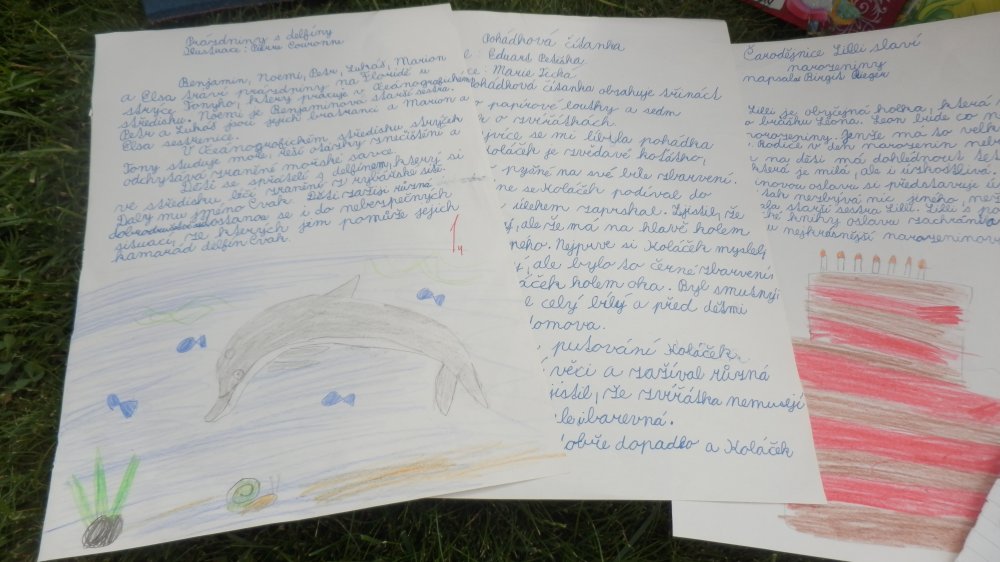 Prázdniny s delfíny
Ilustrace: Pierre Couronne
Benjamin, Noemi, Petr, Lukáš, Marion
a Elsa tráví prázdniny na Floridě u
strýce Tonyho, který pracuje v Oceánografickém
středisku. Noemi je Benjaminova starší sestra.
Petr a Lukáš jsou jejich bratranci a Marion a
Elsa sestřenice.
V Oceánografickém středisku strýček
Tony studuje moře, řeší otázky znečištění a
odchytává zraněné mořské savce.
Děti se spřátelí s delfínem, který si
ve středisku léčí zranění z rybářské sítě.
Daly mu jméno Cvak. Děti zažijí různá
dobrodružství dostanou se i do nebezpečných
situací, ze kterých jem pomůže jejich
kamarád delfín Cvak.
1
Pohádková čítanka
: Eduart Petiška
ce: Marie Tichá
Pohádková čítanka obsahuje třináct
papírové loutky a sedm
o zvířátkách.
více se mi líbila pohádka
Koláček je zvědavé koťátko,
pyšné na své bílé zbarvení.
ne se Koláček podíval do
úlekem zaprskal. Zjistil, že
ý, ale že má na hlavě kolem
ného. Nejprve si Koláček myslel,
, ale bylo to černé zbarvení
áček holem oka. Byl smutný,
e celý bílý a před dětmi
omova.
putování Koláček
věci a zažíval různá
jistil, že zvířátka nemusejí
le i barevná.
obře dopadlo a Koláček
Čarodějnice Lilli slaví
narozeniny
napsala Birgit Rieger
Lilli je obyčejná holka, která
o brášku Leona. Leon bude co
narozeniny. Jenže má to velk
Rodiče v den narozenin
na děti má dohlédnout
která je milá, ale i úzkostlivá.
novou oslavu si představuje
tak nezbývá nic jiného, než
ala starší sestra Lilli. Lilli s
né knihy oslavu zachrání
u nejkrásnější narozeninov